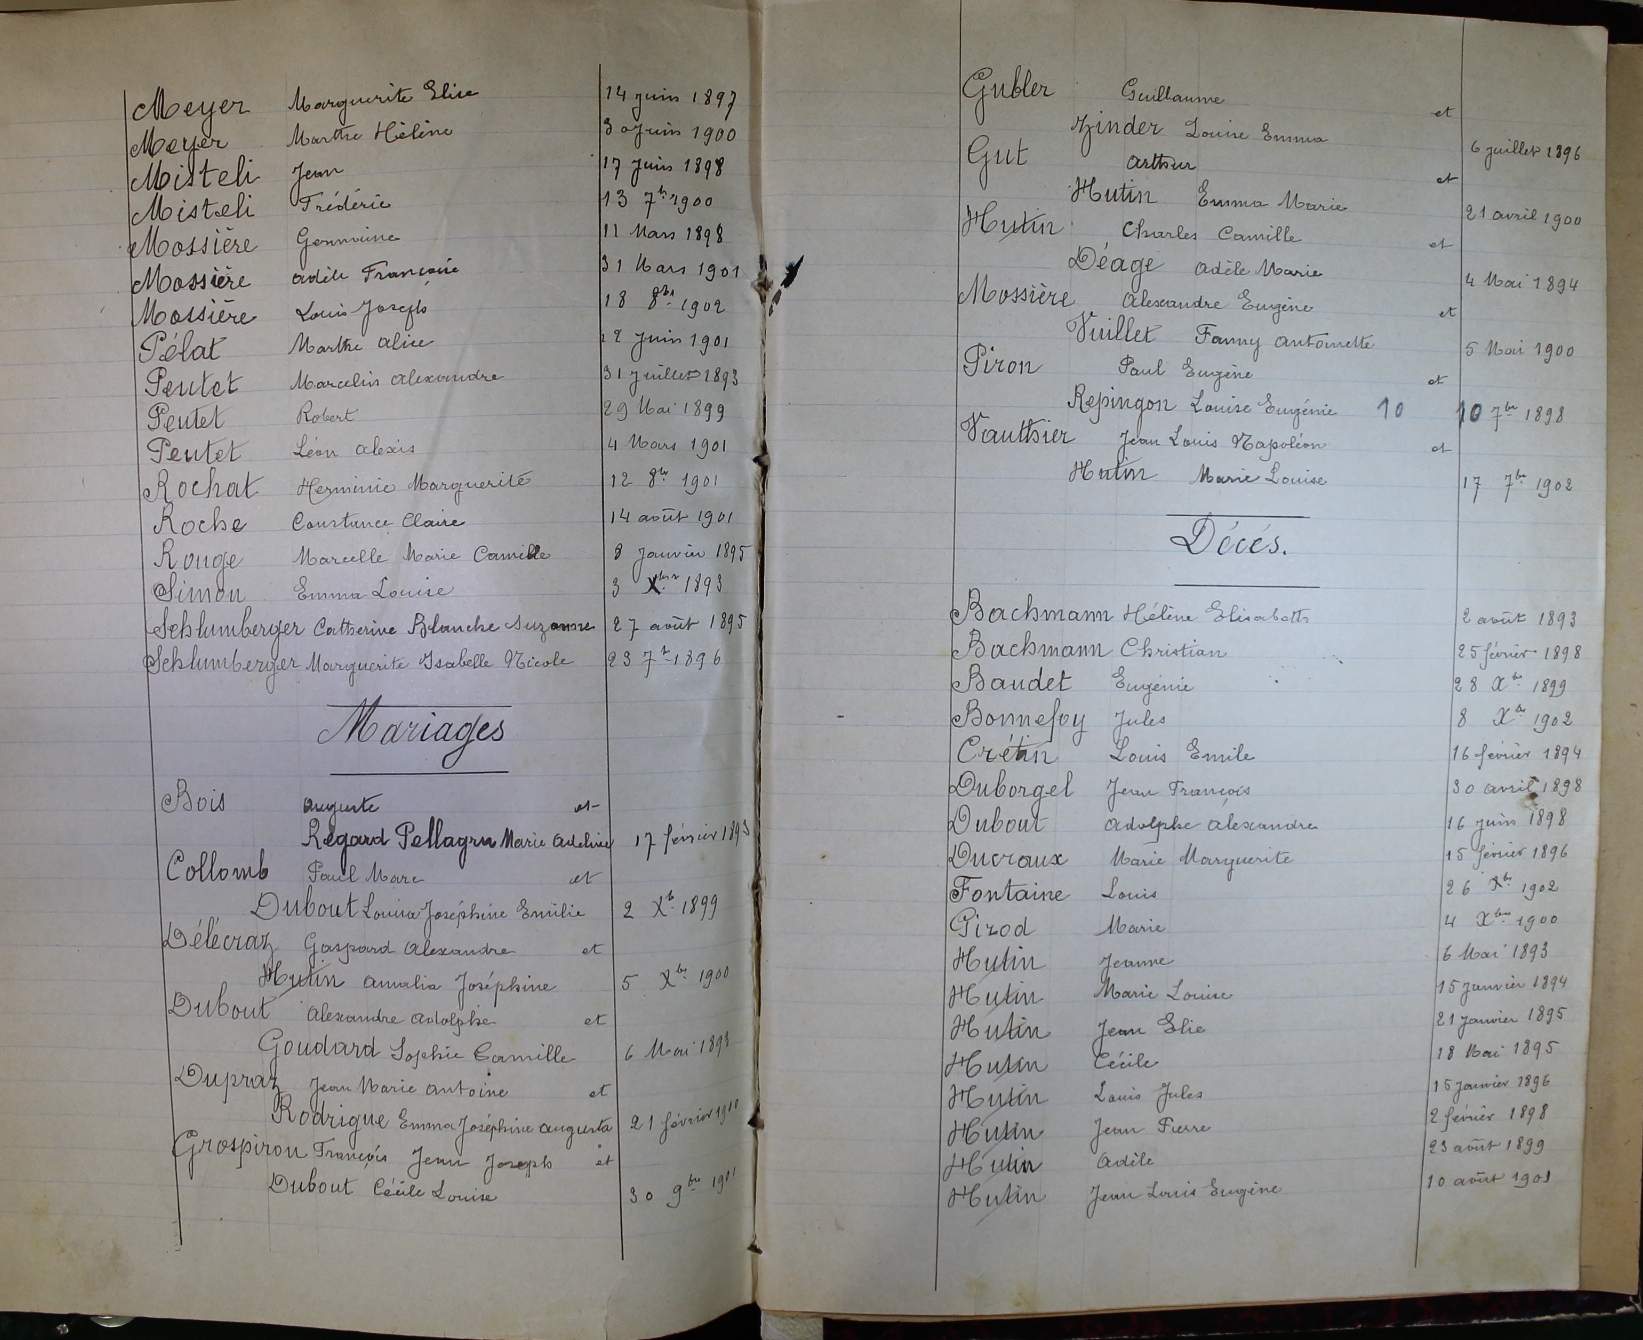 Meyer Marguerite Elise 14 juin 1897
Meyer Marthe Hélène 30 Juin 1900
Misteli Jean 17 Juin 1898
Misteli Frédéric 13 7bre 1900
Mossière Germaine 11 Mars 1898
Mossière Adèle Françoise 31 Mars 1901
Mossière Louis Joseph 18 8bre 1902
Pélat Marthe Alice 12 Juin 1901
Pentet Marcelin Alexandre 31 juillet 1893
Pentet Robert 29 Mai 1899
Pentet Léon Alexis 4 Mars 1901
Rochat Herminie Marguerite 12 8bre 1901
Roche Constance Claire 14 août 1901
Rouge Marcelle Marie Camille 8 Janvier 1895
Simon Emma Louise 3 Xbre 1893
Schlumberger Catherine Blanche Suzanne 27 août 1895
Schlumberger Marguerite Isabelle Nicole 23 7bre 1896
Mariages
Bois Auguste et
Regard Pellagru Marie Adeline 17 février 1893
Collomb Paul Marc et
Dubout Louisa Joséphine Emilie 2 Xbre 1899
Délécraz Gaspard Alexandre et
Hutin Amalia Joséphine 5 Xbre 1900
Dubout Alexandre Adolphe et
Goudard Sophie Camille 6 Mai 1893
Dupraz Jean Marie Antoine et
Rodrigue Emma Joséphine Augusta 21 février
Grospiron François Jean Joseph et
Dubout Cécile Louise 30 9bre 1901
Gubler Guillaume et
Zinder Louise Emma 6 juillet 1896
Gut Arthur et
Hutin Emma Marie 21 avril 1900
Hutin Charles Camille et
Déage Adèle Marie 4 Mai 1894
Mossière Alexandre Eugène et
Vuillet Fanny Antoinette 5 Mai 1900
Piron Paul Eugène et
Repingon Louise Eugénie 10 10 7bre 1898
Vauthier Jean Louis Napoléon et
Hutin Marie Louise 17 7bre 1902
Décés.
Bachmann Hélène Elisabeth 2 août 1893
Bachmann Christian 25 février 1898
Baudet Eugénie 28 Xbre 1899
Bonnefoy Jules 8 Xbre 1902
Crétin Louis Emile 16 février 1894
Duborgel Jean François 30 avril 1898
Dubout Adolphe Alexandre 16 juin 1898
Ducraux Marie Marguerite 15 février 1896
Fontaine Louis 26 Xbre 1902
Girod Marie 4 Xbre 1900
Hutin Jeanne 6 Mai 1893
Hutin Marie Louise 15 janvier 1894
Hutin Jean Elie 21 Janvier 1895
Hutin Cécile 18 Mai 1895
Hutin Louis Jules 15 Janvier 1896
Hutin Jean Pierre 2 février 1898
Hutin Adèle 23 août 1899
Hutin Jean Louis Eugène 10 août 1901